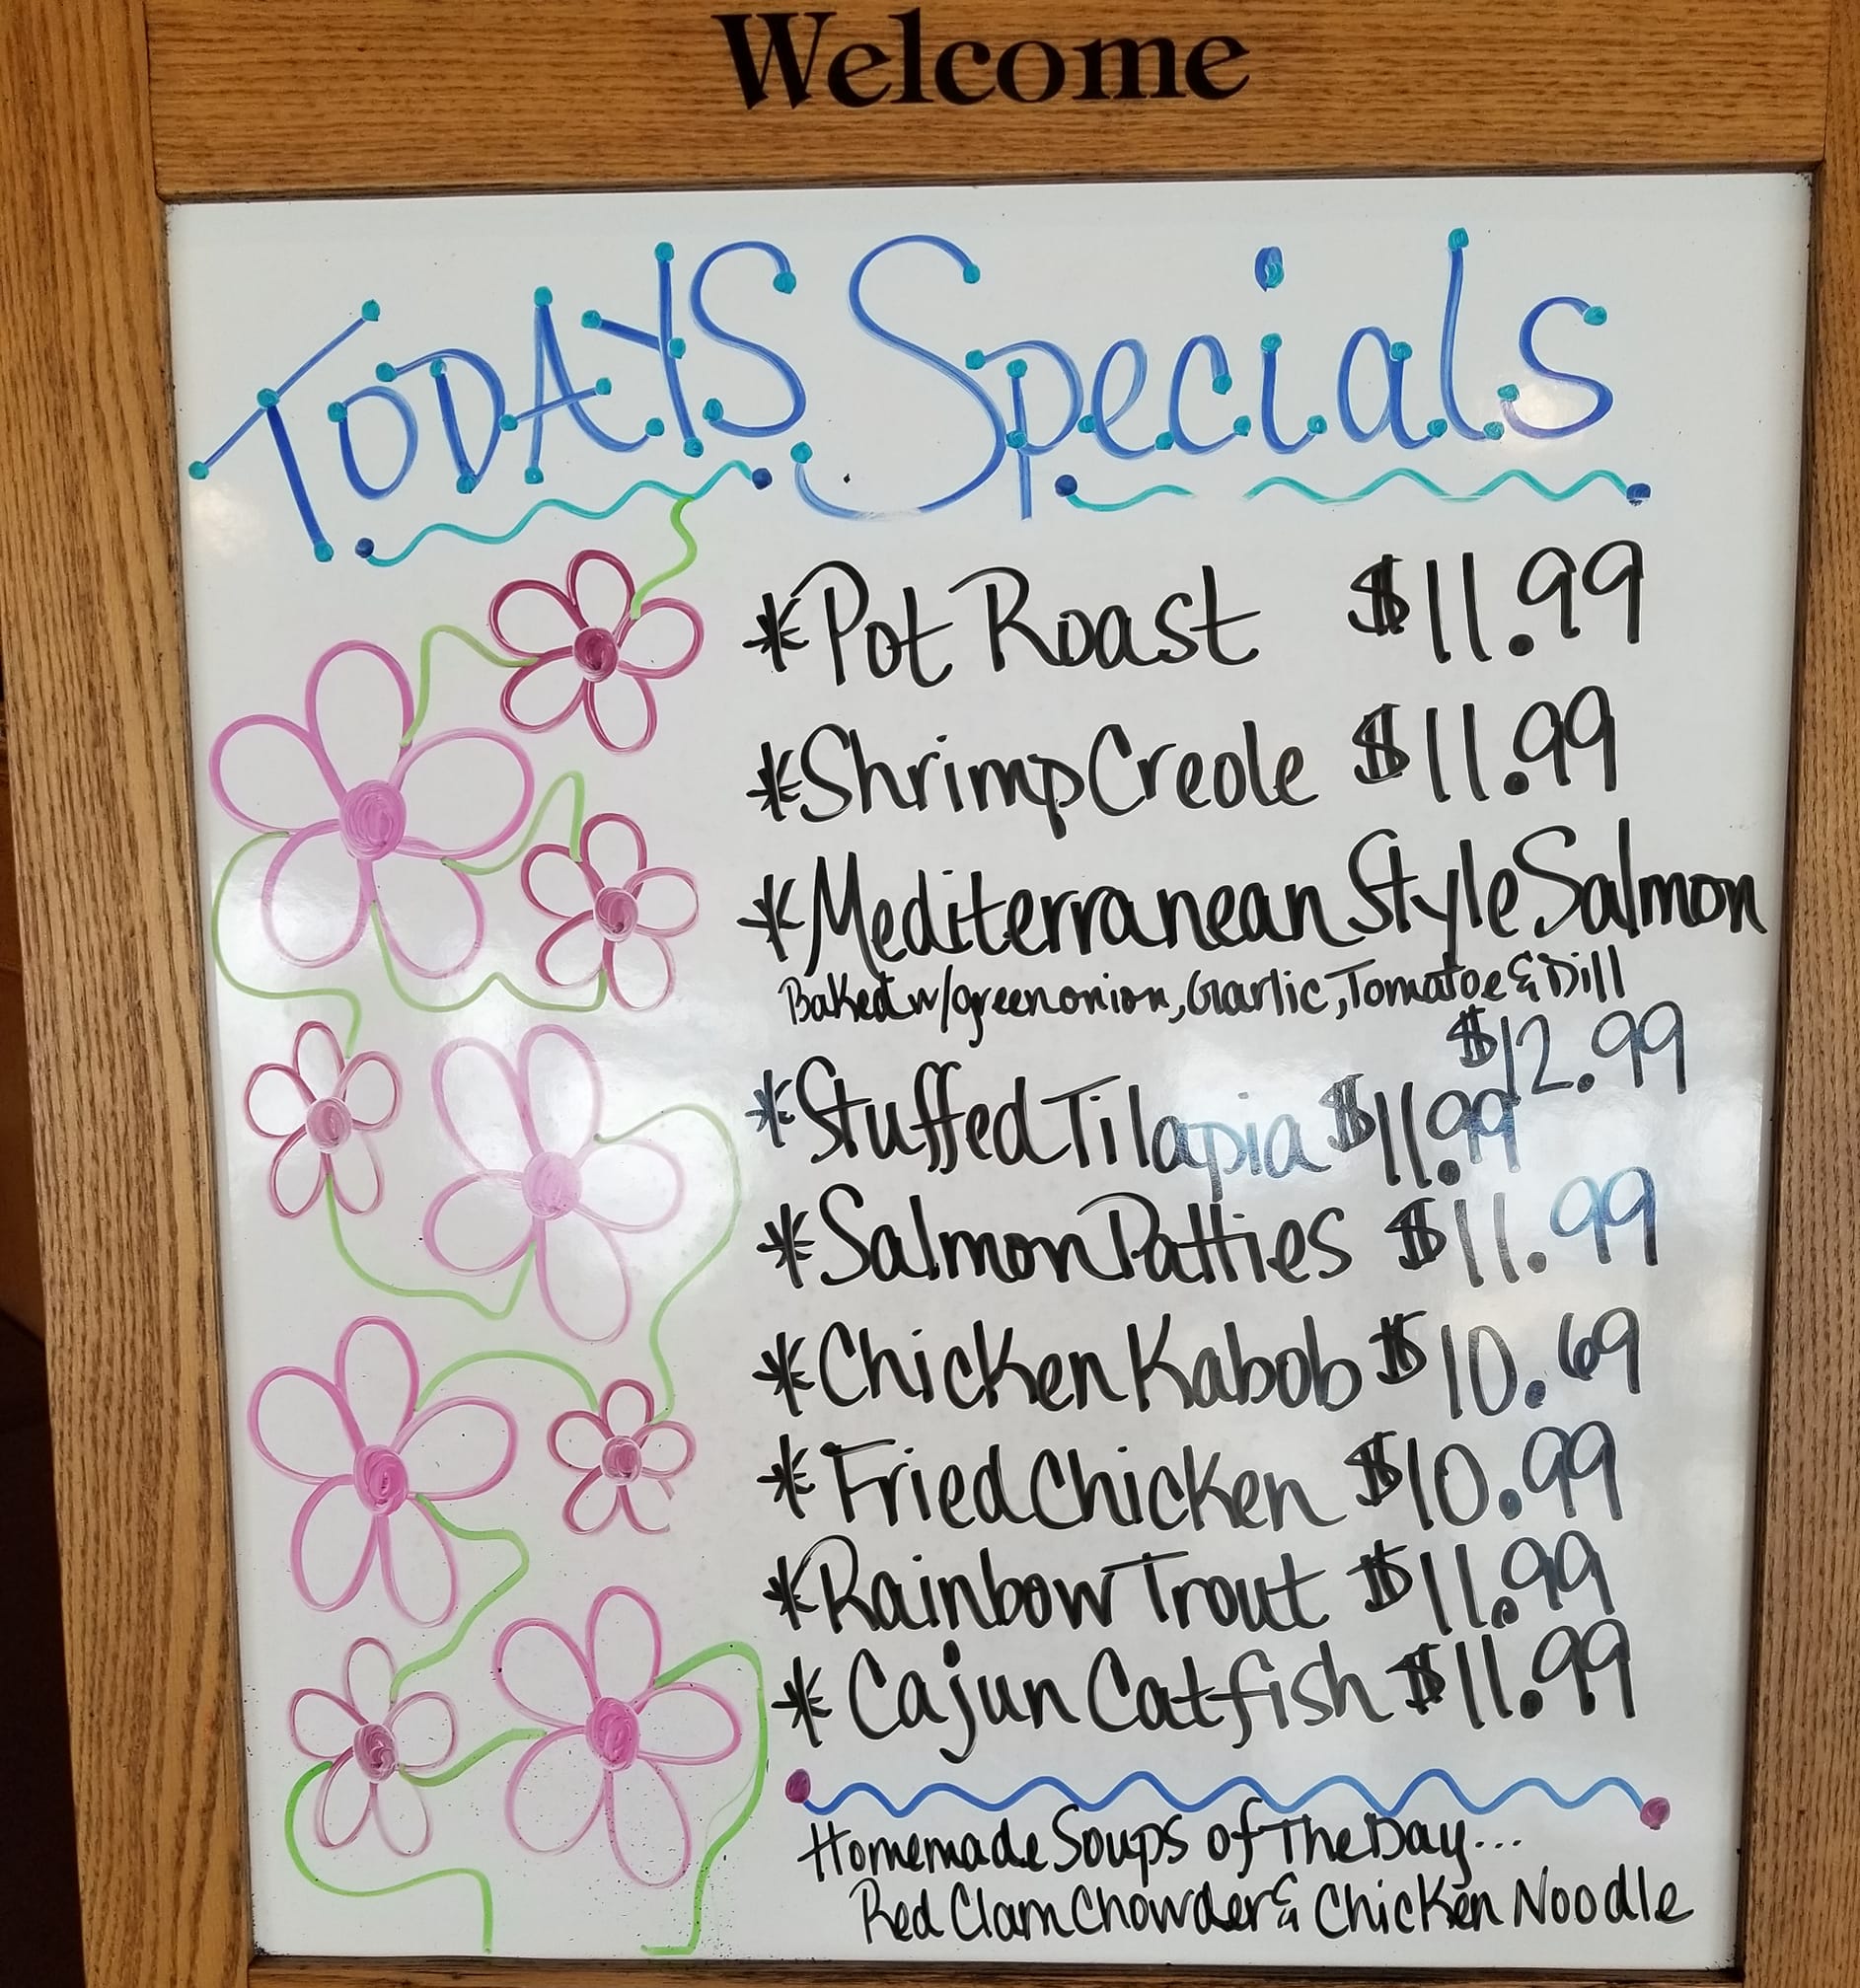 Welcome
TODAYS Specials
*Pot Roast $11.99
*Shrimp Creole $11.99
*Mediterranean Style Salmon
Baked w/green onion, Garlic, Tomatoe & Dill
$12.99
*Stuffed Tilapia $11.99
*Salmon Patties $11.99
*Chicken Kabob $10.69
*Fried Chicken $10.99
*Rainbow Trout $11.99
*Cajun Catfish $11.99
Homemade Soups of The Day...
Red Clam Chowder & Chicken Noodle